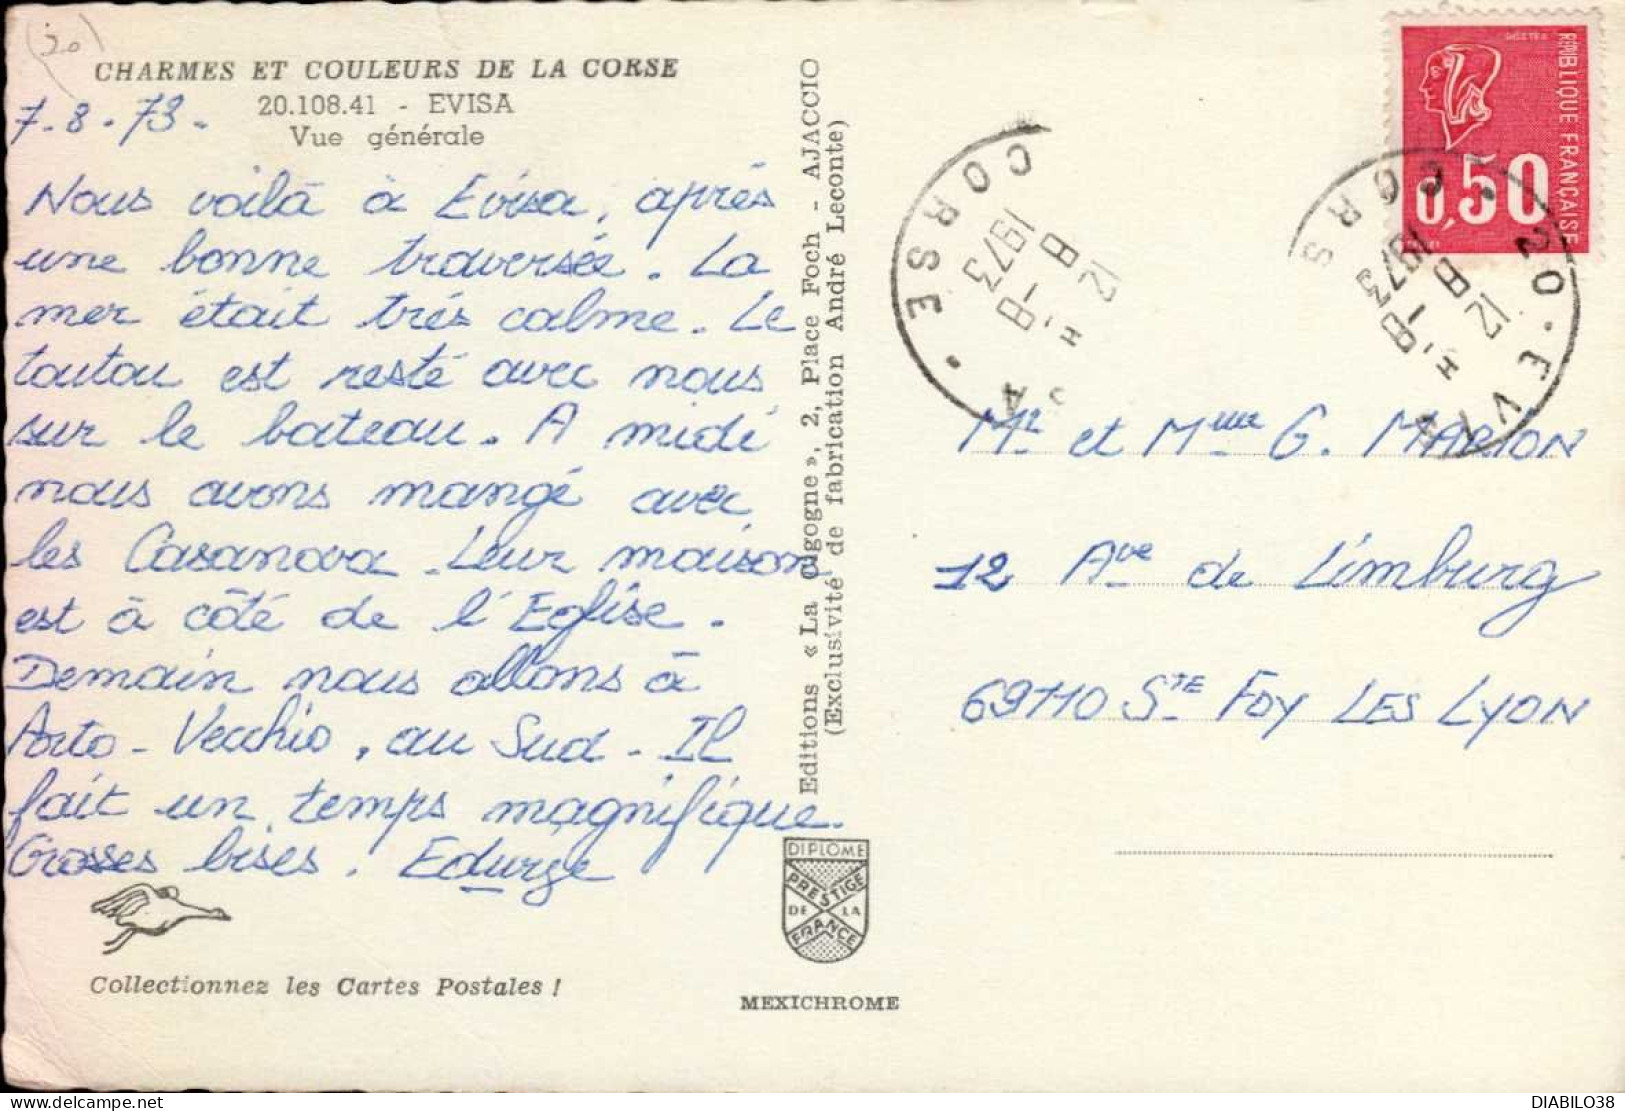 (20)
CHARMES ET COULEURS DE LA CORSE
20.108.41 - EVISA
Vue générale
7-8-73-
Nous voilà à Evisa, après
une bonne traversée. La
mer était très calme. Le
toutou est resté avec nous
sur le bateau. A midi
nous avons mangé avec
les Casanova. Leur maison
est à côté de l'Eglise.
Demain nous allons à
Porto-Vecchio, au Sud. Il
fait un temps magnifique.
Grosses bises. Edurge
Collectionnez les Cartes Postales !
Editions « La Cigogne », 2, Place Foch - AJACCIO
(Exclusivité de fabrication André Leconte)
DIPLOME
PRESTIGE
DE LA
FRANCE
MEXICHROME
RÉPUBLIQUE FRANÇAISE
0,50
CORSE
12 H
8 -8
1973
20 · EVISA
CORS
12 H
8 -8
1973
Mr et Mme G. MARION
12 Ave de Limburg
69110 STE FOY LES LYON
DIABILO38